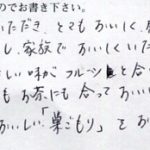 のでお書き下さい。
いただき、とてもおいしく、
し、家族でおいしくいた
しい味がフルーツと合っ
もお茶にも合っておいい
おいしい「巣ごもり」をお